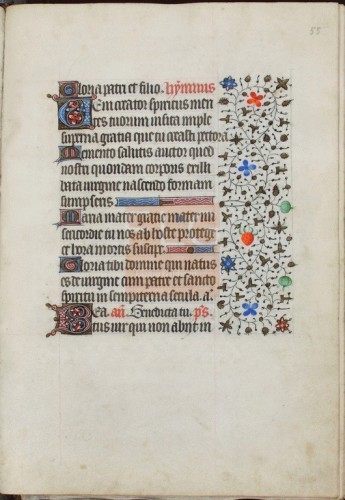 55
Gloria patri et filio. hymnus
Veni creator spiritus men
tes tuorum visita imple
superna gratia que tu creasti pectora
Memento salutis auctor quod
nostri quondam corporis ex illi
bata virgine nascendo formam
sumpseris.
Maria mater gratie mater mi
sericordie tu nos ab hoste protege
et hora mortis suscipe.
Gloria tibi domine qui natus
es de virgine cum patre et sancto
spiritu in sempiterna secula. a.
Bea. añ. Benedicta tu. ps.
tus vir qui non abiit in